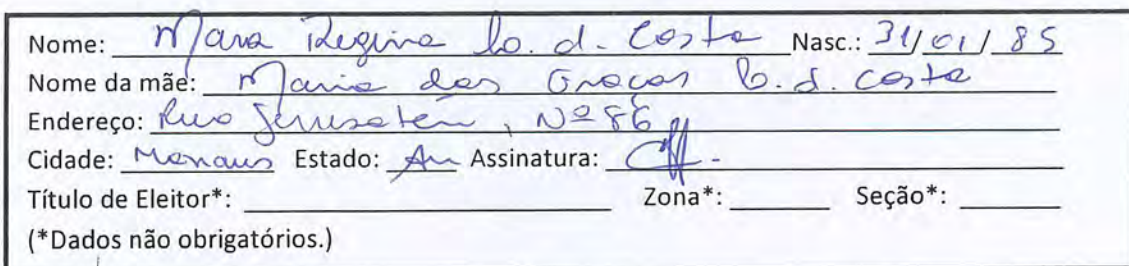 Nome: Mara Regina C. d. Costa Nasc.: 31/01/85
Nome da mãe: Maria das Graças C. d. Costa
Endereço: Rua Jerusalém, Nº 86
Cidade: Manaus Estado: Am Assinatura:
Título de Eleitor*: Zona*: Seção*:
(*Dados não obrigatórios.)